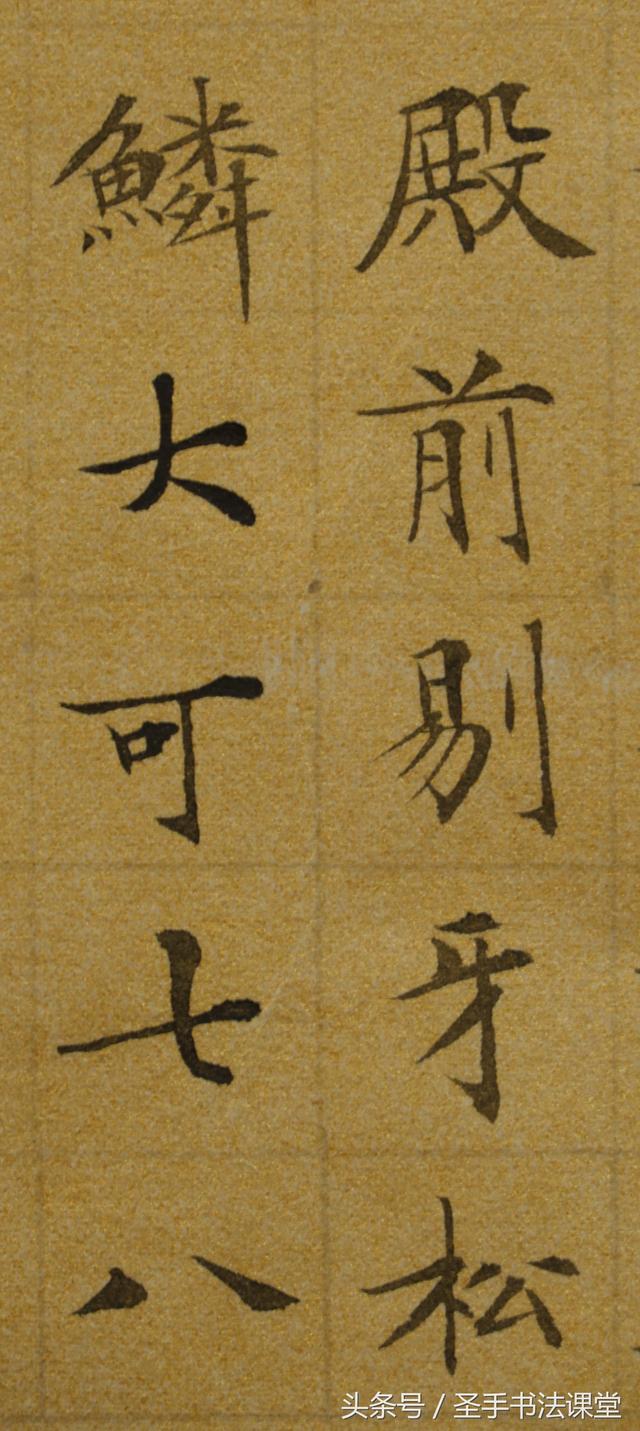 殿前剔牙松
鱗大可七八
头条号 / 圣手书法课堂